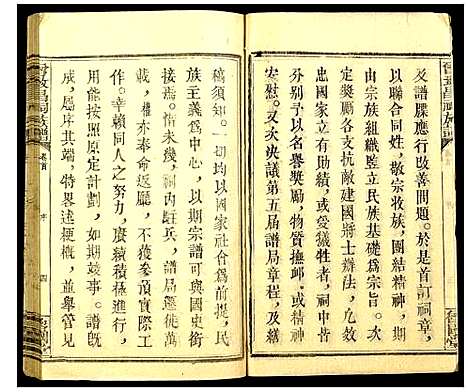 及譜牒應行改善問題。於是首訂祠章,
以聯合同姓,敬宗收族,團結精神,期
由宗族組織監立民族基礎為宗旨。次
定獎勵各支抗敵建國將士辦法,凡效
忠國家有功勛績,或受犧牲者,祠中當
分別予以名譽獎勵,物質撫卹,或精神
安慰。又次決議第五屆譜局章程,及編
稿須知。一切均以國家社合為前提,民
族主義為中心,以期宗譜可長與國史
接焉。惜未幾,祠內駐兵,譜局遷徙萬
載,權亦奉命返廳,不獲參預實際工
作。幸賴同人之努力,賡續積極進行,
能按照原定計劃,如期竣事。譜旣
成,應序其端,特畧述梗概,並舉管見
卷首
序
四